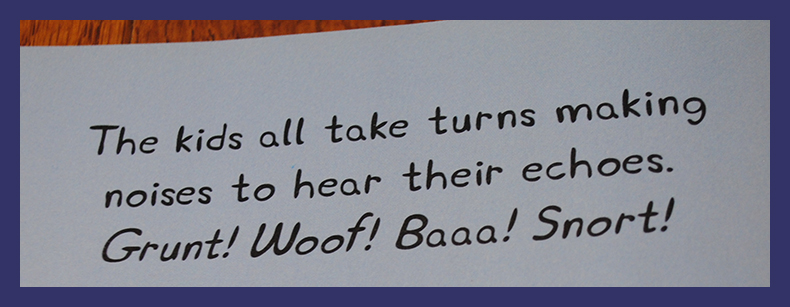 The kids all take turns making
noises to hear their echoes.
Grunt! Woof! Baaa! Snort!